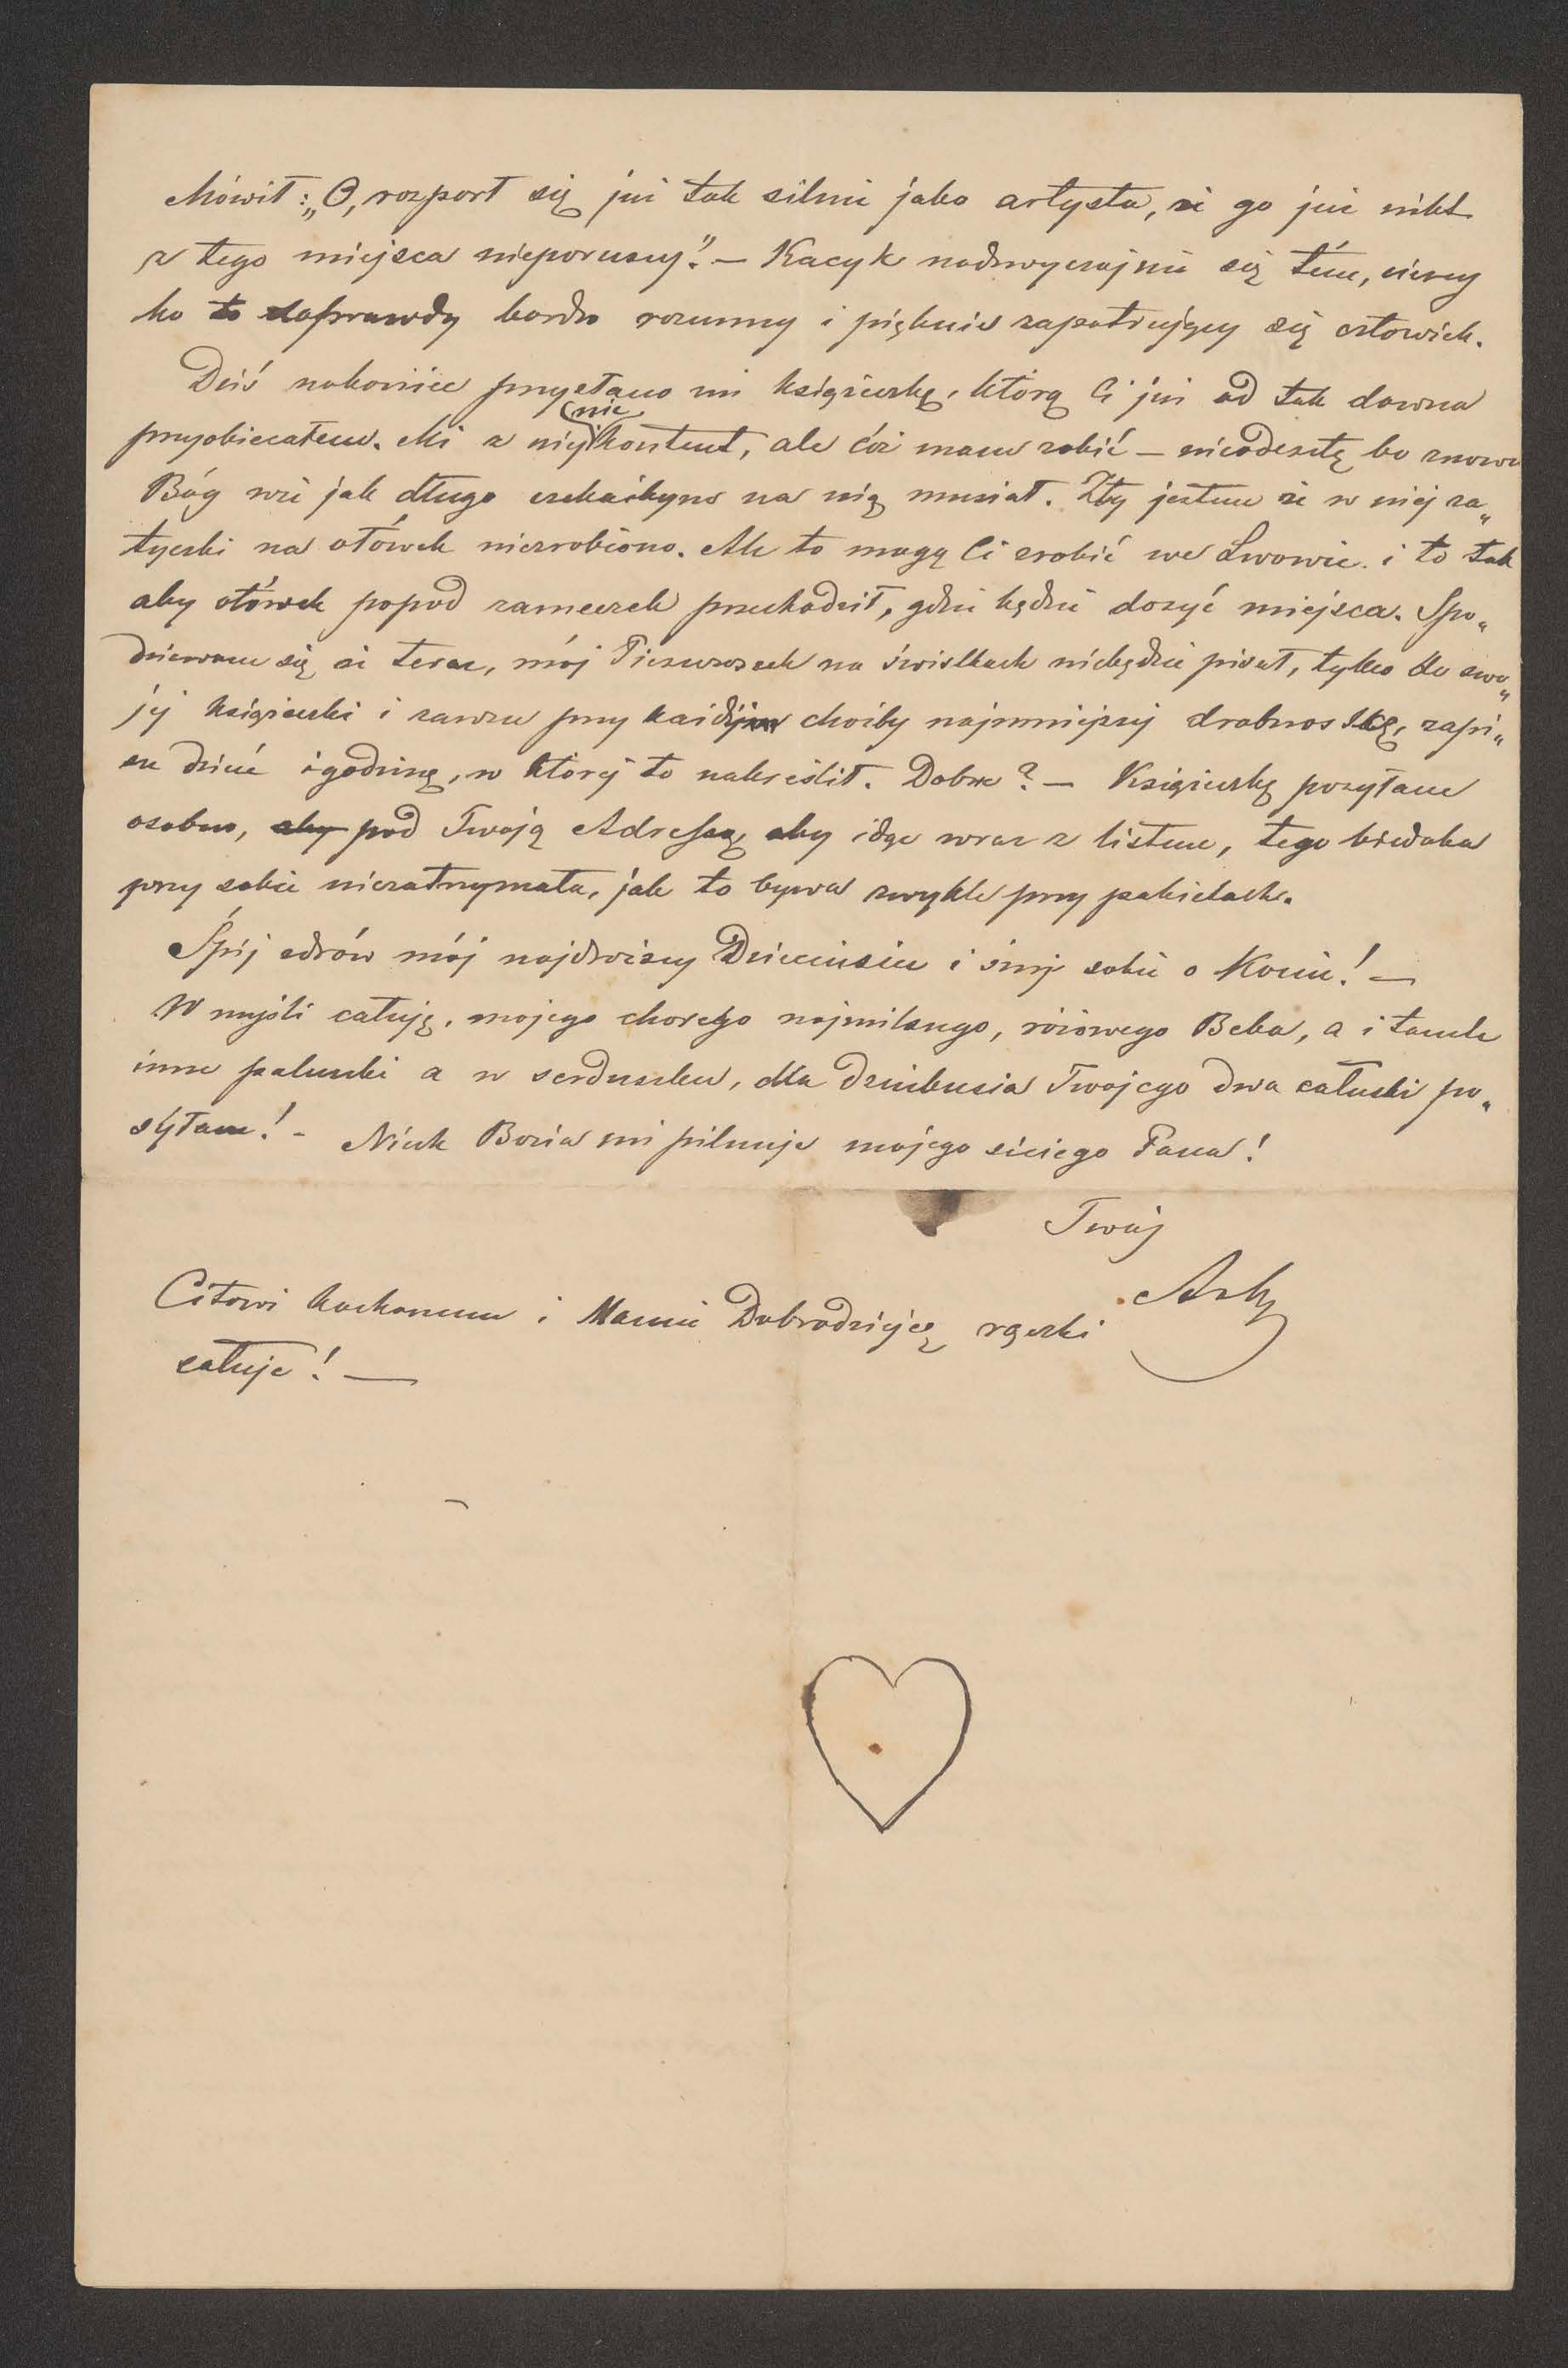 Mówił: „O, rozparł się już tak silnie jako artysta, że go już nikt
z tego miejsca nieporuszy". — Kacyk nadzwyczajnie się tém, cieszy
bo to doprawdy bardzo rozumny i pięknie zapatrujący się człowiek.
Dziś nakoniec przysłano mi książeczkę, którą Ci już od tak dawna
przyobiecałem. Ale z niéj nie kontent, ale cóż mam robić — nieodeszlę bo znowu
Bóg wie jak długo czekaćbym na nią musiał. Zły jestem że w niéj za„
tyczki na ołówek niezrobiono. Ale to mogą Ci zrobić we Lwowie i to tak
aby ołówek popod zameczek przechodził, gdzie będzie dosyć miejsca. Spo„
dziewam się że teraz, mój Pieszczoszek na świstkach niebędzie pisał, tylko do swo„
jéj książeczki i zawsze przy każdéj choćby najmniejszéj drobnostkę, zapi„
sze dzień i godzinę, w któréj to nakreślił. Dobrze? — Książeczkę posyłam
osobno, aby pod Twoją Adressą aby idąc wraz z listem, tego biedaka
przy sobie niezatrzymała, jak to bywa zwykle przy pakietach.
Śpij zdrów mój najdroższy Dzieciusiu i śnij sobie o Koniu! —
W myśli całuję, mojego chorego najmilszego, różowego Beba, a i tamte
inne paluszki a w serduszku, dla Dziubusia Twojego dwa całuski po„
syłam! - Niech Bozia mi pilnuje mojego Pana!
Twój
Citowi kochanemu i Mamie Dobrodziejce rączki
całuje! —